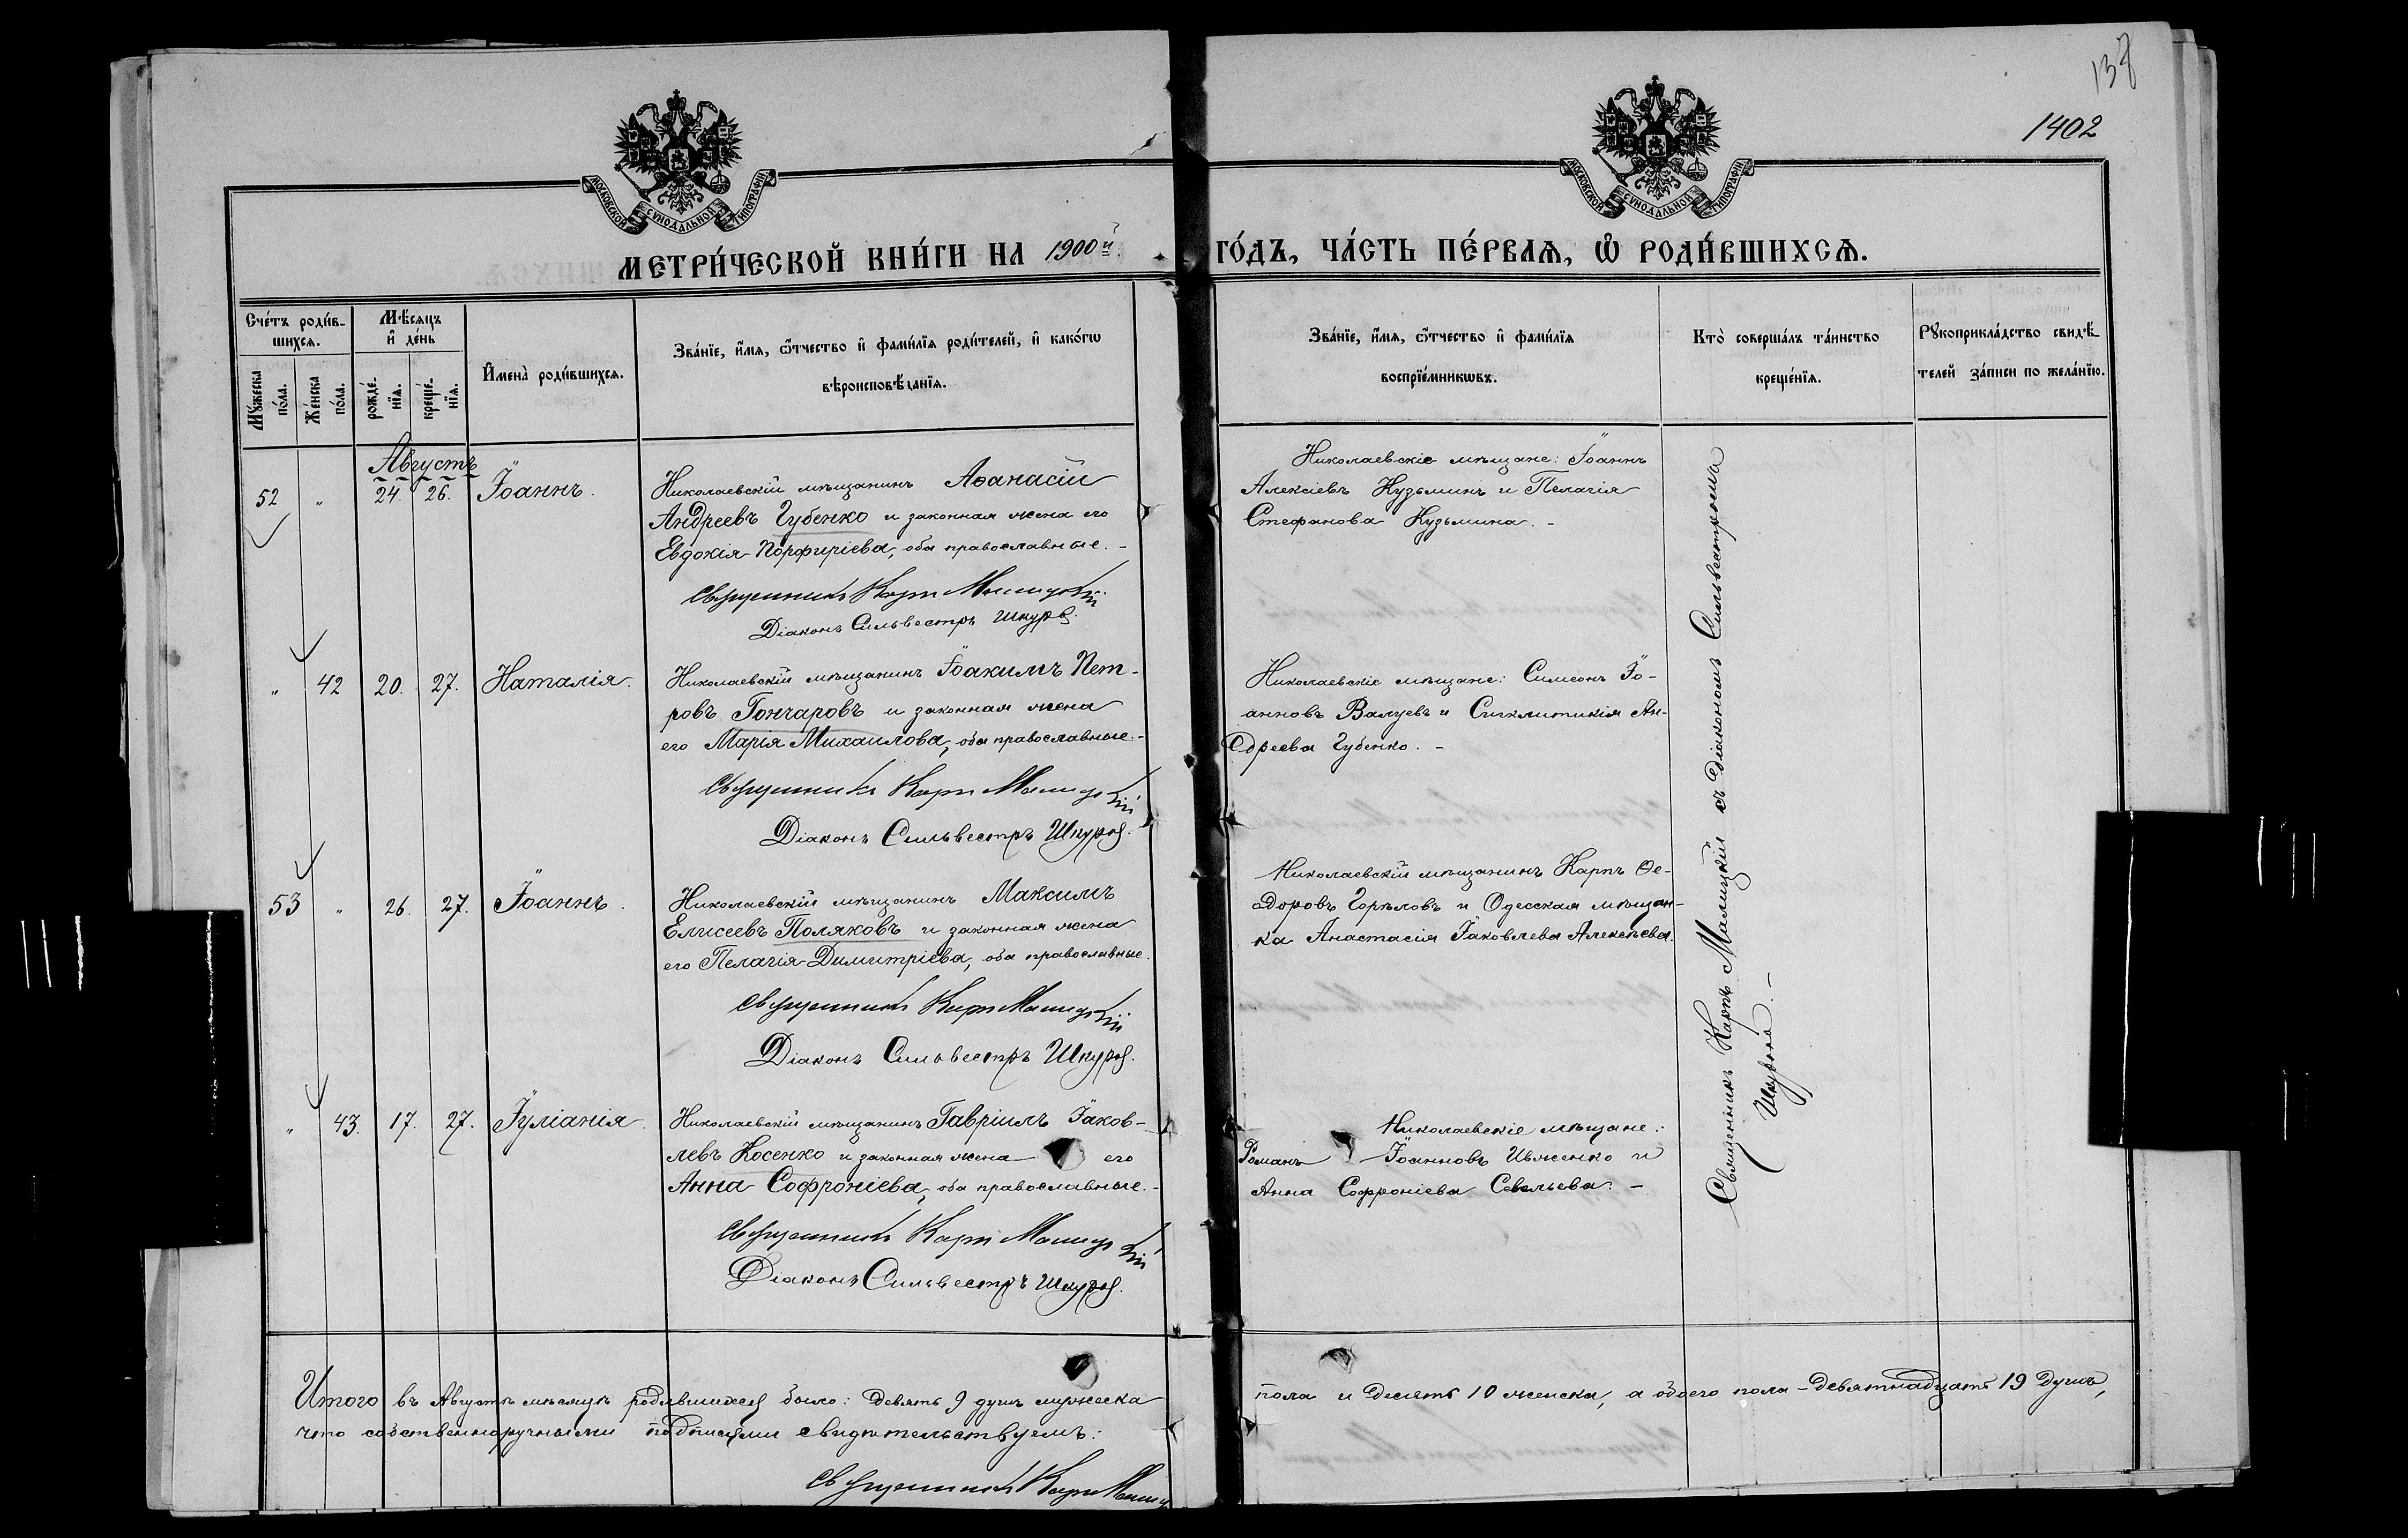 138
1402
МОСКОВСКОЙ СУНОДАЛЬНОЙ ТИПОГРАФІИ
МОСКОВСКОЙ СУНОДАЛЬНОЙ ТИПОГРАФІИ
МЕТРИ́ЧЕСКОЙ КНИ́ГИ НА 1900й ГО́ДЪ, ЧА́СТЬ ПЕ́РВАѦ, Ѡ РОДИ́ВШИХСѦ.
Сче́тъ роди́в-
шихсѧ.
Мѣ́сѧцъ
и҆ де́нь
Мꙋ́жеска
по́ла.
Же́нска
по́ла.
рожде́-
нїѧ.
креще́-
нїѧ.
И҆мена̀ роди́вшихсѧ.
Зва́нїе, и҆́мѧ, ѻ҆́тчество и҆ фами́лїѧ роди́телей, и҆ како́гѡ
вѣроисповѣ́данїѧ.
Зва́нїе, и҆́мѧ, ѻ҆́тчество и҆ фами́лїѧ
воспрїе́мникѡвъ.
Кто̀ соверша́лъ та́инство
креще́нїѧ.
Рꙋкоприкла́дство свидѣ́-
телей за́писи по жела́нїю.
Августъ
52 " 24 26. Іоаннъ.
Николаевскій мѣщанинъ Аѳанасій
Андреевъ Губенко и законная жена его
Евдокія Порфиріева, оба православные. -
Священникъ Карпъ Малицкій
Діаконъ Сильвестръ Шкурѣ.
Николаевскіе мѣщане: Іоаннъ
Алексіевъ Кузьминъ и Пелагія
Стефанова Кузьмина. -
" 42 20. 27. Наталія.
Николаевскій мѣщанинъ Іоакимъ Пет-
ровъ Гончаровъ и законная жена
его Марія Михаилова, оба православные. -
Священникъ Карпъ Малицкій
Діаконъ Сильвестръ Шкурѣ.
Николаевскіе мѣщане: Симеонъ Іо-
анновъ Валуевъ и Сигклитикія Ан-
дреева Губенко. -
53 " 26. 27. Іоаннъ.
Николаевскій мѣщанинъ Максимъ
Елисеевъ Поляковъ и законная жена
его Пелагія Димитріева, оба православные.
Священникъ Карпъ Малицкій
Діаконъ Сильвестръ Шкурѣ.
Николаевскій мѣщанинъ Карпъ Ѳе-
одоровъ Горѣловъ и Одесская мѣщан-
ка Анастасія Іаковлева Алексѣева.
" 43. 17. 27. Іуліанія.
Николаевскій мѣщанинъ Гавріилъ Іаков-
левъ Косенко и законная жена его
Анна Софроніева, оба православные. -
Священникъ Карпъ Малицкій
Діаконъ Сильвестръ Шкурѣ.
Николаевскіе мѣщане:
Романъ Іоанновъ Ивженко и
Анна Софроніева Савельева. -
Священникъ Карпъ Малицкій съ діакономъ Сильвестромъ
Итого въ Августѣ мѣсяцѣ родившихся было: девять 9 душъ мужеска пола и десять 10 женска, а обоего пола - девятнадцать 19 душъ,
что собственноручными подписями свидѣтельствуемъ:
Священникъ Карпъ